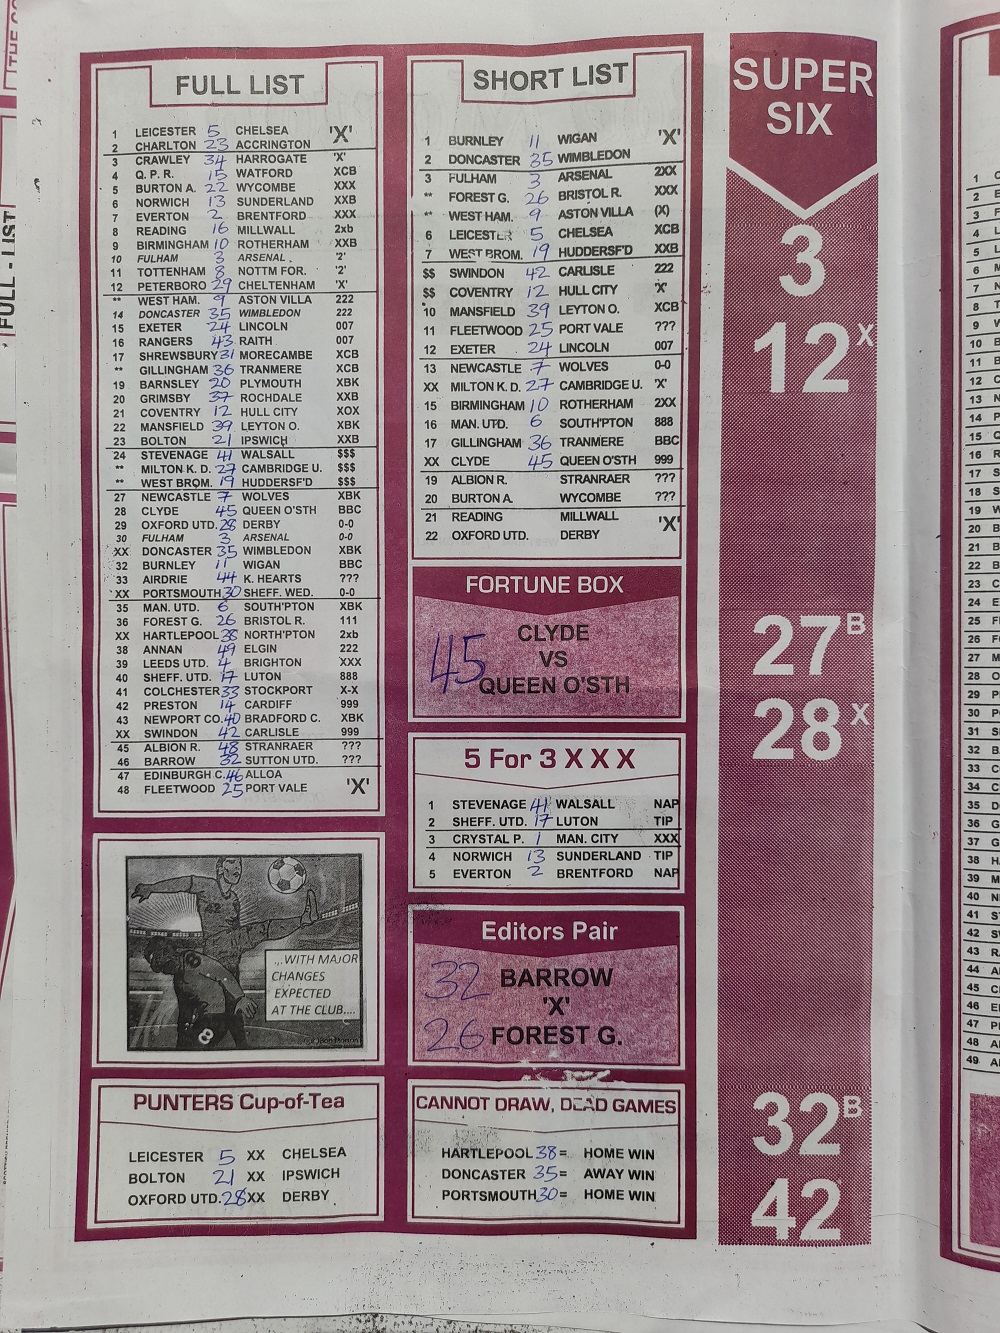 FULL LIST
1 LEICESTER 5 CHELSEA 'X'
2 CHARLTON 23 ACCRINGTON
3 CRAWLEY 34 HARROGATE 'X'
4 Q.P.R. 15 WATFORD XCB
5 BURTON A. 22 WYCOMBE XXX
6 NORWICH 13 SUNDERLAND XXB
7 EVERTON 2 BRENTFORD XXX
8 READING 16 MILLWALL 2xb
9 BIRMINGHAM 10 ROTHERHAM XXB
10 FULHAM 3 ARSENAL '2'
11 TOTTENHAM 8 NOTTM FOR. '2'
12 PETERBORO 29 CHELTENHAM 'X'
** WEST HAM. 9 ASTON VILLA 222
14 DONCASTER 35 WIMBLEDON 222
15 EXETER 24 LINCOLN 007
16 RANGERS 43 RAITH 007
17 SHREWSBURY 31 MORECAMBE XCB
** GILLINGHAM 36 TRANMERE XCB
19 BARNSLEY 20 PLYMOUTH XBK
20 GRIMSBY 37 ROCHDALE XXB
21 COVENTRY 12 HULL CITY XOX
22 MANSFIELD 39 LEYTON O. XBK
23 BOLTON 21 IPSWICH XXB
24 STEVENAGE 41 WALSALL $$$
** MILTON K. D. 27 CAMBRIDGE U. $$$
** WEST BROM. 19 HUDDERSF'D $$$
27 NEWCASTLE 7 WOLVES XBK
28 CLYDE 45 QUEEN O'STH BBC
29 OXFORD UTD. 28 DERBY 0-0
30 FULHAM 3 ARSENAL 0-0
XX DONCASTER 35 WIMBLEDON XBK
32 BURNLEY 11 WIGAN BBC
33 AIRDRIE 44 K. HEARTS ???
XX PORTSMOUTH 30 SHEFF. WED. 0-0
35 MAN. UTD. 6 SOUTH'PTON XBK
36 FOREST G. 26 BRISTOL R. 111
XX HARTLEPOOL 38 NORTH'PTON 2xb
38 ANNAN 49 ELGIN 222
39 LEEDS UTD. 4 BRIGHTON XXX
40 SHEFF. UTD. 17 LUTON 888
41 COLCHESTER 33 STOCKPORT X-X
42 PRESTON 14 CARDIFF 999
43 NEWPORT CO. 40 BRADFORD C. XBK
XX SWINDON 42 CARLISLE 999
45 ALBION R. 48 STRANRAER ???
46 BARROW 32 SUTTON UTD. ???
47 EDINBURGH C. 46 ALLOA 'X'
48 FLEETWOOD 25 PORT VALE
...WITH MAJOR
CHANGES
EXPECTED
AT THE CLUB....
8
PUNTERS Cup-of-Tea
LEICESTER 5 XX CHELSEA
BOLTON 21 XX IPSWICH
OXFORD UTD. 28 XX DERBY
SHORT LIST
1 BURNLEY 11 WIGAN 'X'
2 DONCASTER 35 WIMBLEDON
3 FULHAM 3 ARSENAL 2XX
** FOREST G. 26 BRISTOL R. XXX
** WEST HAM. 9 ASTON VILLA (X)
6 LEICESTER 5 CHELSEA XCB
7 WEST BROM. 19 HUDDERSF'D XXB
$$ SWINDON 42 CARLISLE 222
$$ COVENTRY 12 HULL CITY 'X'
10 MANSFIELD 39 LEYTON O. XCB
11 FLEETWOOD 25 PORT VALE ???
12 EXETER 24 LINCOLN 007
13 NEWCASTLE 7 WOLVES 0-0
XX MILTON K. D. 27 CAMBRIDGE U. 'X'
15 BIRMINGHAM 10 ROTHERHAM 2XX
16 MAN. UTD. 6 SOUTH'PTON 888
17 GILLINGHAM 36 TRANMERE BBC
XX CLYDE 45 QUEEN O'STH 999
19 ALBION R. STRANRAER ???
20 BURTON A. WYCOMBE ???
21 READING MILLWALL 'X'
22 OXFORD UTD. DERBY
FORTUNE BOX
45 CLYDE
VS
QUEEN O'STH
5 For 3 X X X
1 STEVENAGE 41 WALSALL NAP
2 SHEFF. UTD. 17 LUTON TIP
3 CRYSTAL P. 1 MAN. CITY XXX
4 NORWICH 13 SUNDERLAND TIP
5 EVERTON 2 BRENTFORD NAP
Editors Pair
32 BARROW
'X'
26 FOREST G.
CANNOT DRAW, DEAD GAMES
HARTLEPOOL 38 = HOME WIN
DONCASTER 35 = AWAY WIN
PORTSMOUTH 30 = HOME WIN
SUPER
SIX
3
12 X
27 B
28 X
32 B
42